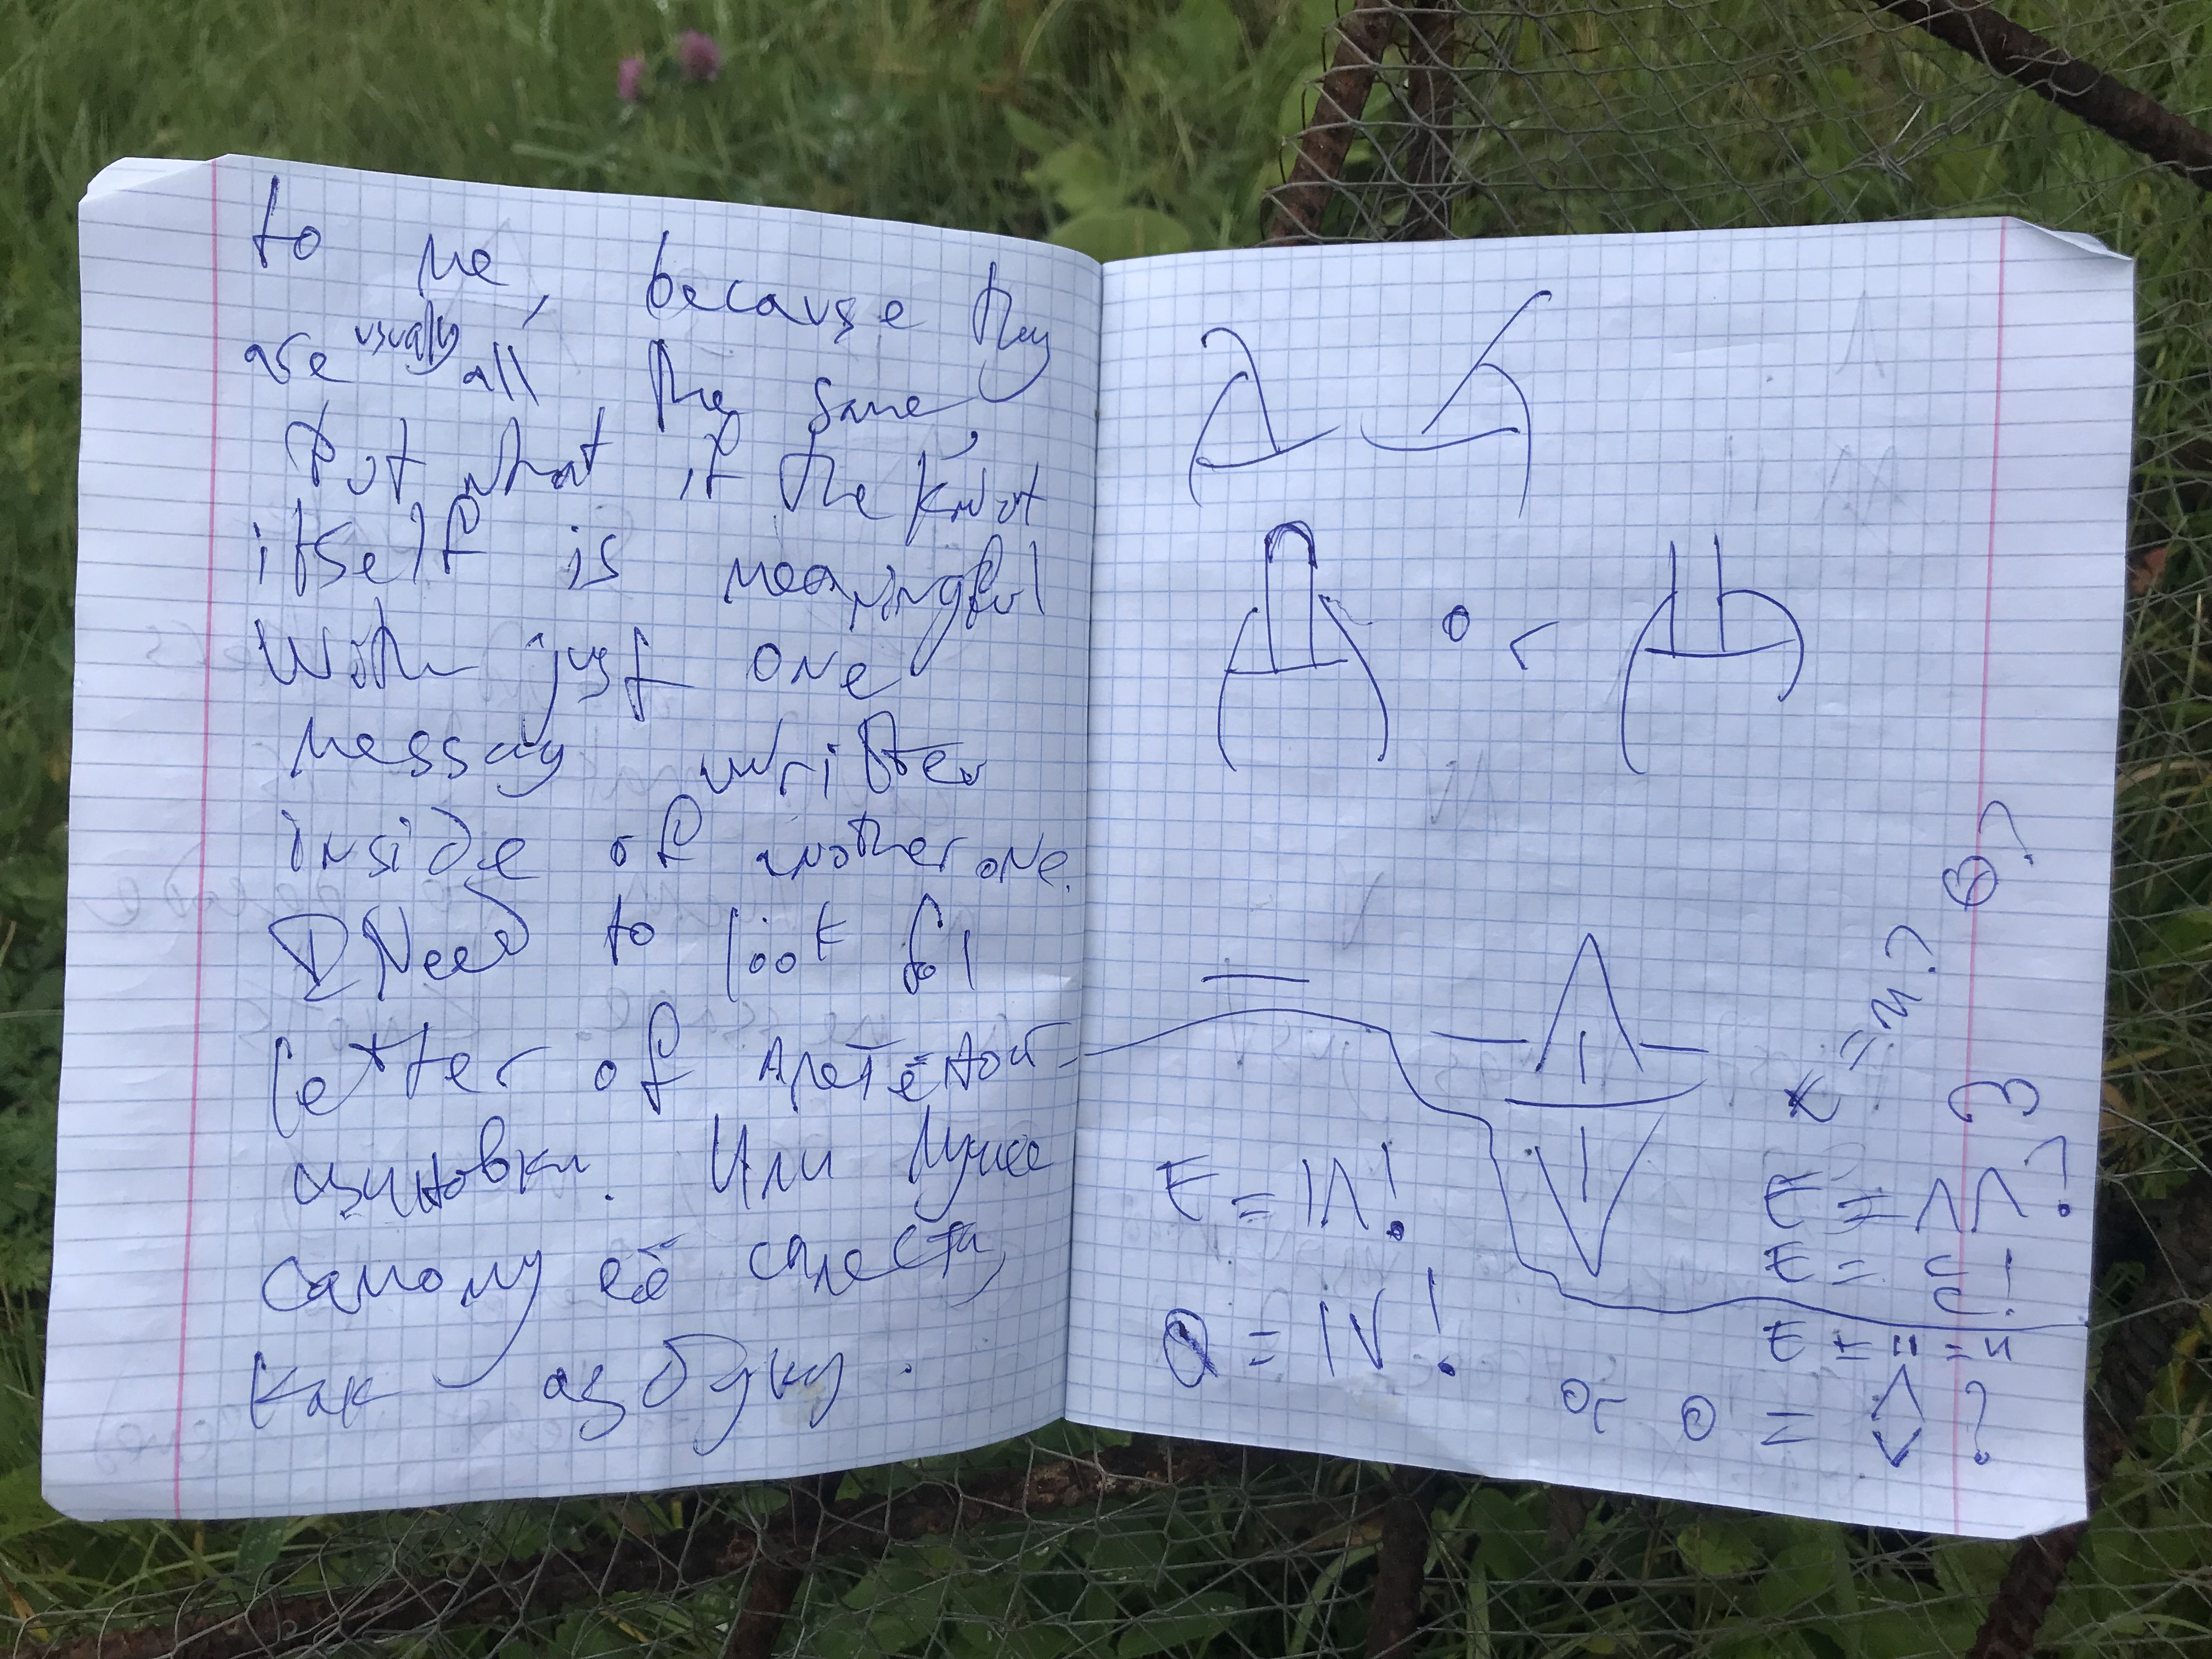 to me, because they
are usually all the same,
But what if the knot
itself is meaningful
With just one
messag writter
inside of another one.
I Need to look for
letter of плетёной
циновки. Или лучше
самому её сплести,
как азбуку.
or
E = IΛ!
O = IV!
E = ΛΛ?
E =
E = || = и
or O = ?
= и?
В?
З